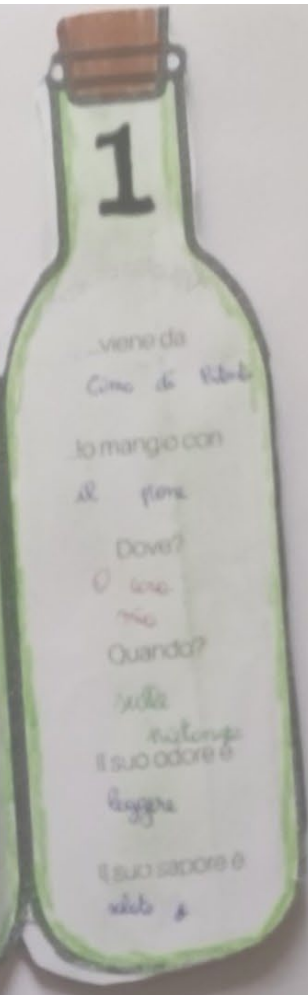 1
...viene da
Cima di
...lo mangio con
il pane
Dove?
mia
Quando?
sulla
Il suo odore è
leggero
Il suo sapore è
salato